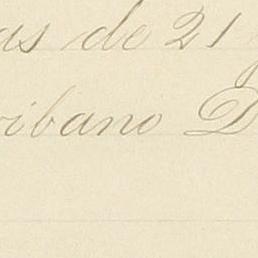 as de 21
ribano D